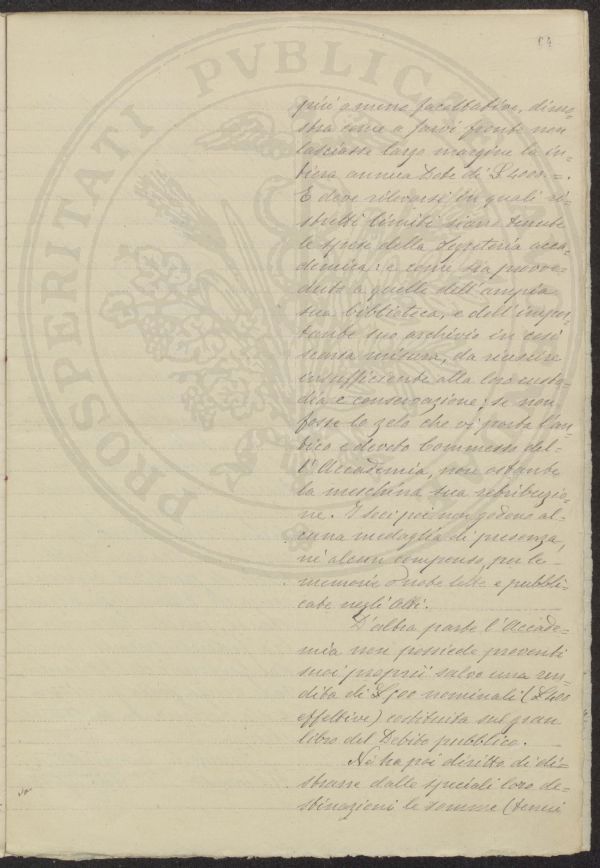 64
più o meno facoltative, dimo-
stra come a farvi fronte non
lasciasse largo margine la in-
tiera annua Dote di £ 4000=.
E deve rilevarsi in quali ri-
stretti limiti siano tenute
le spese della Segreteria acca-
demica: e come sia provve-
duto a quelle dell'ampia
sua biblioteca, e dell'impor-
tante suo archivio in così
scarsa misura, da riuscire
insufficiente alla loro custo-
dia e conservazione; se non
fosse lo zelo che vi porta l'an-
tico e devoto Commesso del-
l'Accademia, non ostante
la meschina sua retribuzio-
ne. I soci poi non godono al-
cuna medaglia di presenza,
nè alcun compenso, per le
memorie o note lette e pubbli-
cate negli Atti.
D'altra parte l'Accade-
mia non possiede proventi
suoi proprii salvo una ren-
dita di £ 500 nominali (£ 400
effettive) costituita sul gran
libro del Debito pubblico.
Nè ha poi diritto di di-
strarre dalle speciali loro de-
stinazioni le somme (tenui
PROSPERITATI PVBLICAE